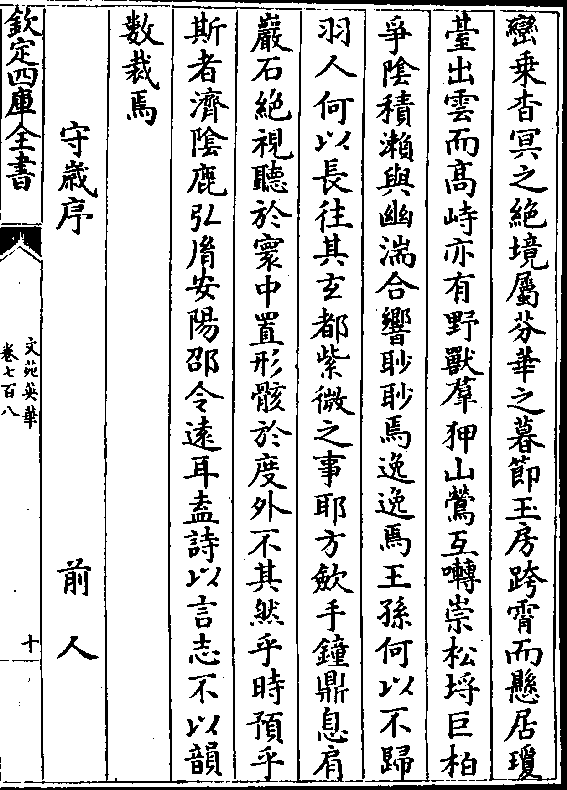 巒乗杳冥之絶境屬芬華之暮節玉房跨霄而懸居瓊
臺出雲而髙峙亦有野獸羣狎山鶯互囀崇松埒巨柏
爭陰積瀬與幽湍合響眇眇焉逸逸焉王孫何以不歸
羽人何以長往其玄都紫微之事耶方歛手鐘鼎息肩
巖石絶視聽於寰中置形骸於度外不其然乎時預乎
斯者濟陰鹿弘胤安陽邵令逺耳盍詩以言志不以韻
數裁焉
守歲序 前人
欽定四庫全書
文苑英華
卷七百八
十